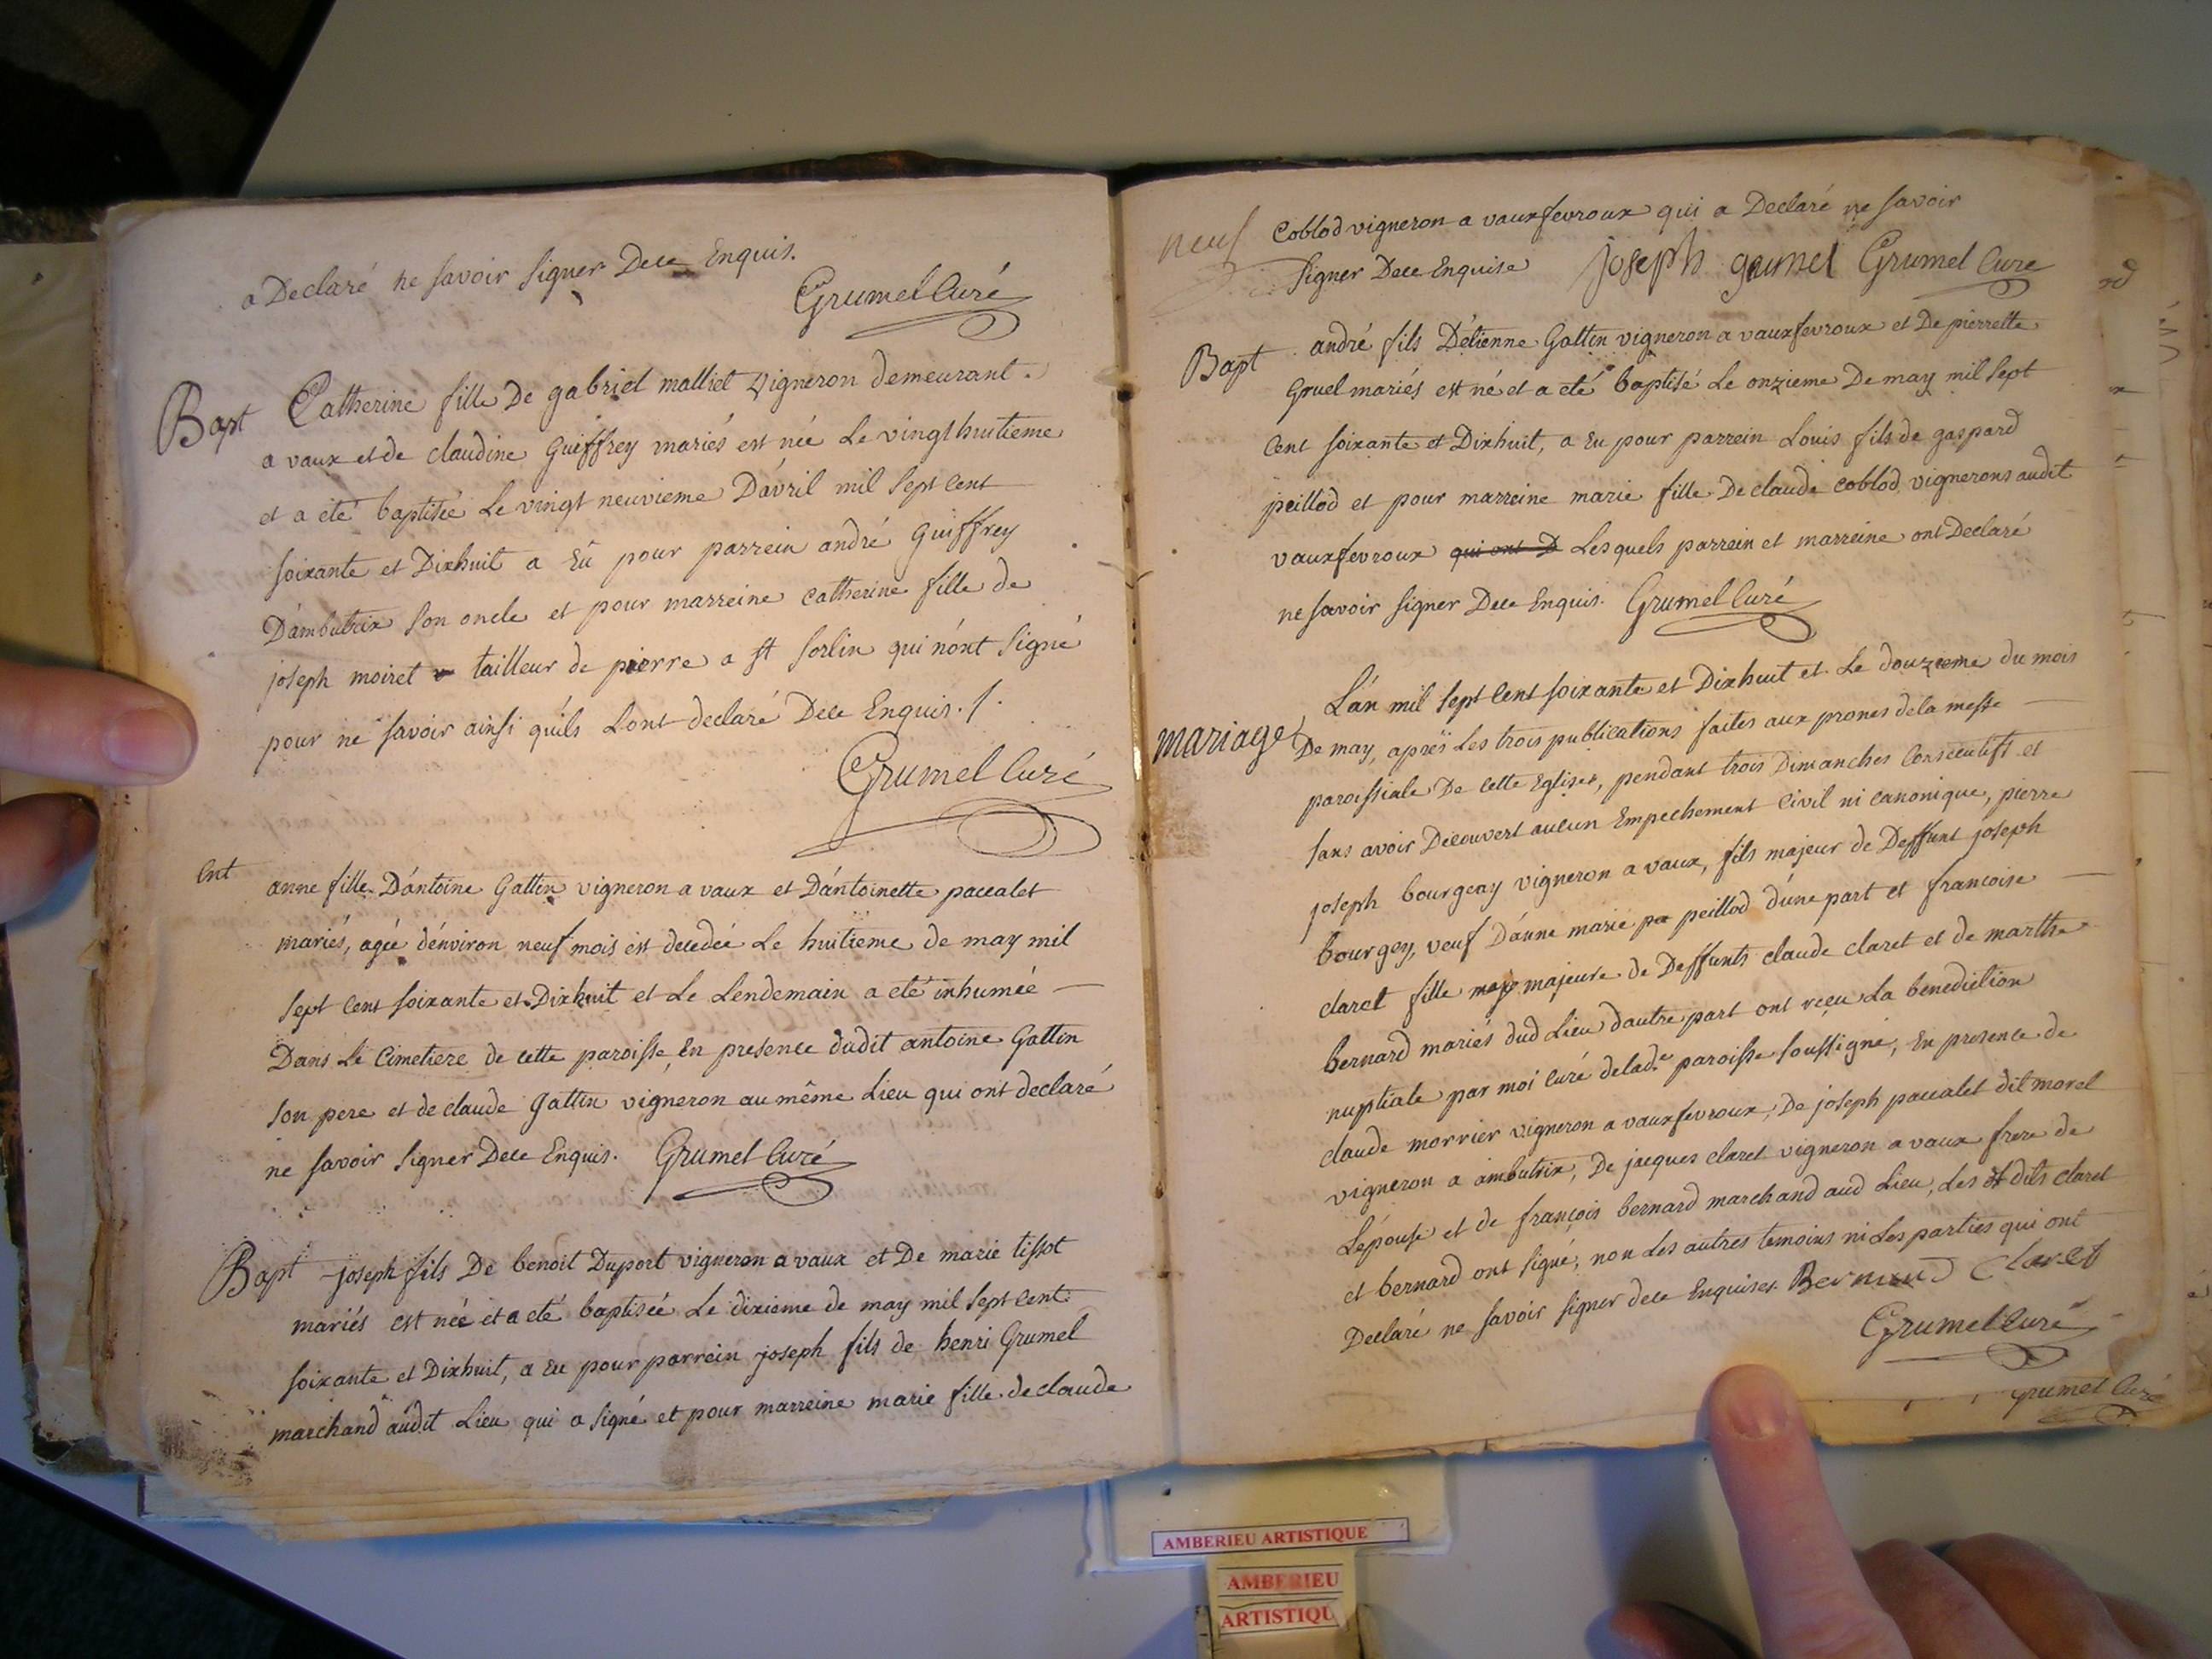 a Declaré ne savoir signer Dece Enquis.
Grumel Curé
Bapt Catherine fille De gabriel malliet vigneron demeurant
a vaux et de claudine Guiffrey mariés est née Le vingt huitieme
et a eté baptisée Le vingt neuvieme D'avril mil Sept Cent
soixante et Dixhuit a Eû pour parrein andré Guiffrey
D'ambutrix son oncle et pour marreine catherine fille de
joseph moiret tailleur de pierre a st sorlin qui n'ont signé
pour ne savoir ainsi qu'ils L'ont declaré Dece Enquis.
Grumel Curé
Ent anne fille D'antoine Gattin vigneron a vaux et D'antoinette paccalet
mariés, agée d'environ neuf mois est decedée Le huitieme de may mil
sept cent soixante et Dixhuit et Le Lendemain a eté inhumée
Dans Le Cimetiere de cette paroisse, En presence dudit antoine Gattin
son pere et de claude Gattin vigneron au même Lieu qui ont declaré
ne savoir signer Dece Enquis. Grumel Curé
Bapt joseph fils De benoit Duport vigneron a vaux et De marie tissot
mariés est née et a eté baptisée Le dixieme de may mil sept cent
soixante et Dixhuit, a Eu pour parrein joseph fils de henri Grumel
marchand audit Lieu qui a signé et pour marreine marie fille de claude
neuf
Coblod vigneron a vauxfevroux qui a Declaré ne savoir
signer Dece Enquise joseph grumel Grumel Curé
Bapt andré fils D'étienne Gattin vigneron a vauxfevroux et De pierrette
Gruel mariés est né et a eté baptisé Le onzieme De may mil Sept
Cent soixante et Dixhuit, a Eu pour parrein Louis fils de gaspard
peillod et pour marreine marie fille De claude coblod vignerons audit
vauxfevroux qui ont D Lesquels parrein et marreine ont Declaré
ne savoir signer Dece Enquis. Grumel Curé
L'an mil Sept Cent soixante et Dixhuit et Le douzieme du mois
mariage De may, après Les trois publications faites aux prones de la messe
paroissiale De cette Eglise, pendant trois Dimanches Consecutifs et
sans avoir Decouvert aucun Empechement Civil ni canonique, pierre
joseph bourgeay vigneron a vaux, fils majeur de Deffunt joseph
bourgey, veuf D'anne marie pe peillod d'une part et francoise
claret fille maje majeure de Deffunts claude claret et de marthe
bernard mariés dud Lieu d'autre part ont reçeu La benediction
nuptiale par moi curé de lade paroisse soussigné, En presence de
claude morrier vigneron a vauxfevroux, De joseph paccalet dit morel
vigneron a ambutrix, De jacques claret vigneron a vaux frere de
L'épouse et de françois bernard marchand aud Lieu, Les dits claret
et bernard ont signé, non Les autres temoins ni Les parties qui ont
Declaré ne savoir signer dece Enquises. Bernard Claret
Grumel Curé
Grumel Curé
AMBERIEU ARTISTIQUE
AMBERIEU
ARTISTIQU